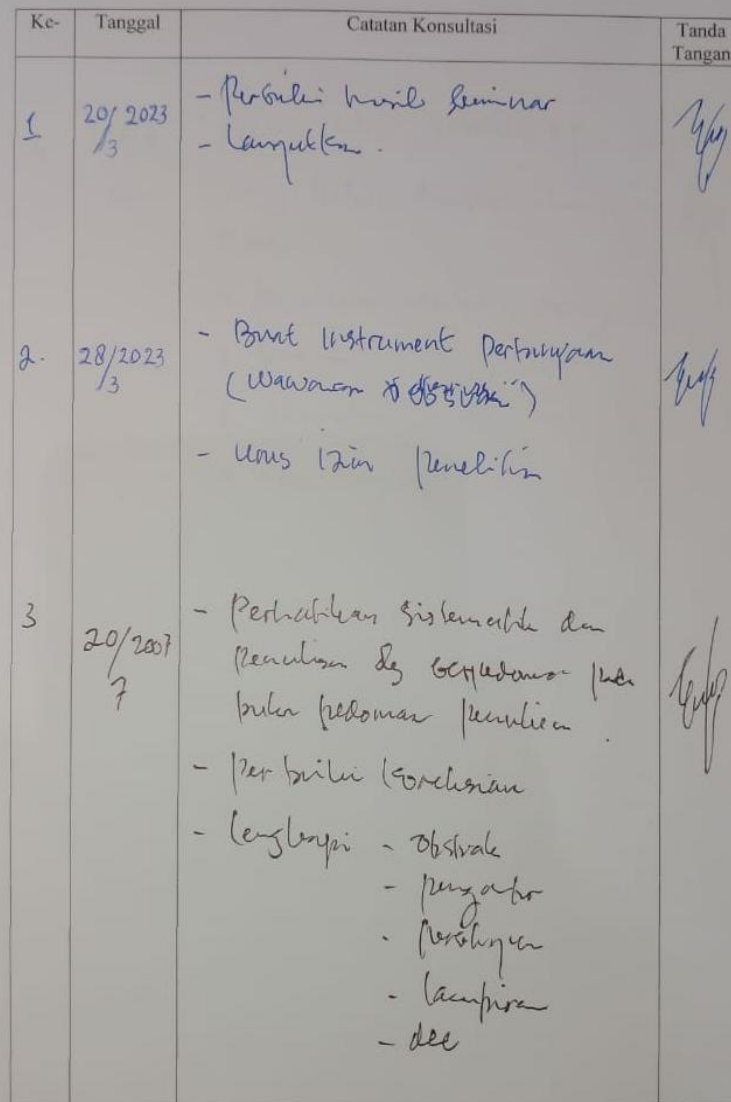 Ke- Tanggal Catatan Konsultasi Tanda Tangan
1 20/3 2023 - Perbaiki hasil Seminar
- Lanjutkan.
2. 28/3 2023 - Buat Instrument Pertanyaan
(Wawancara
- Urus izin penelitian
3 20/7 - Perhatikan Sistematik dan
penulisan dg berpedoman pada
buku pedoman penulisan.
- Perbaiki
- lengkapi - Abstrak
- pengantar
- persetujuan
- lampiran
- dll